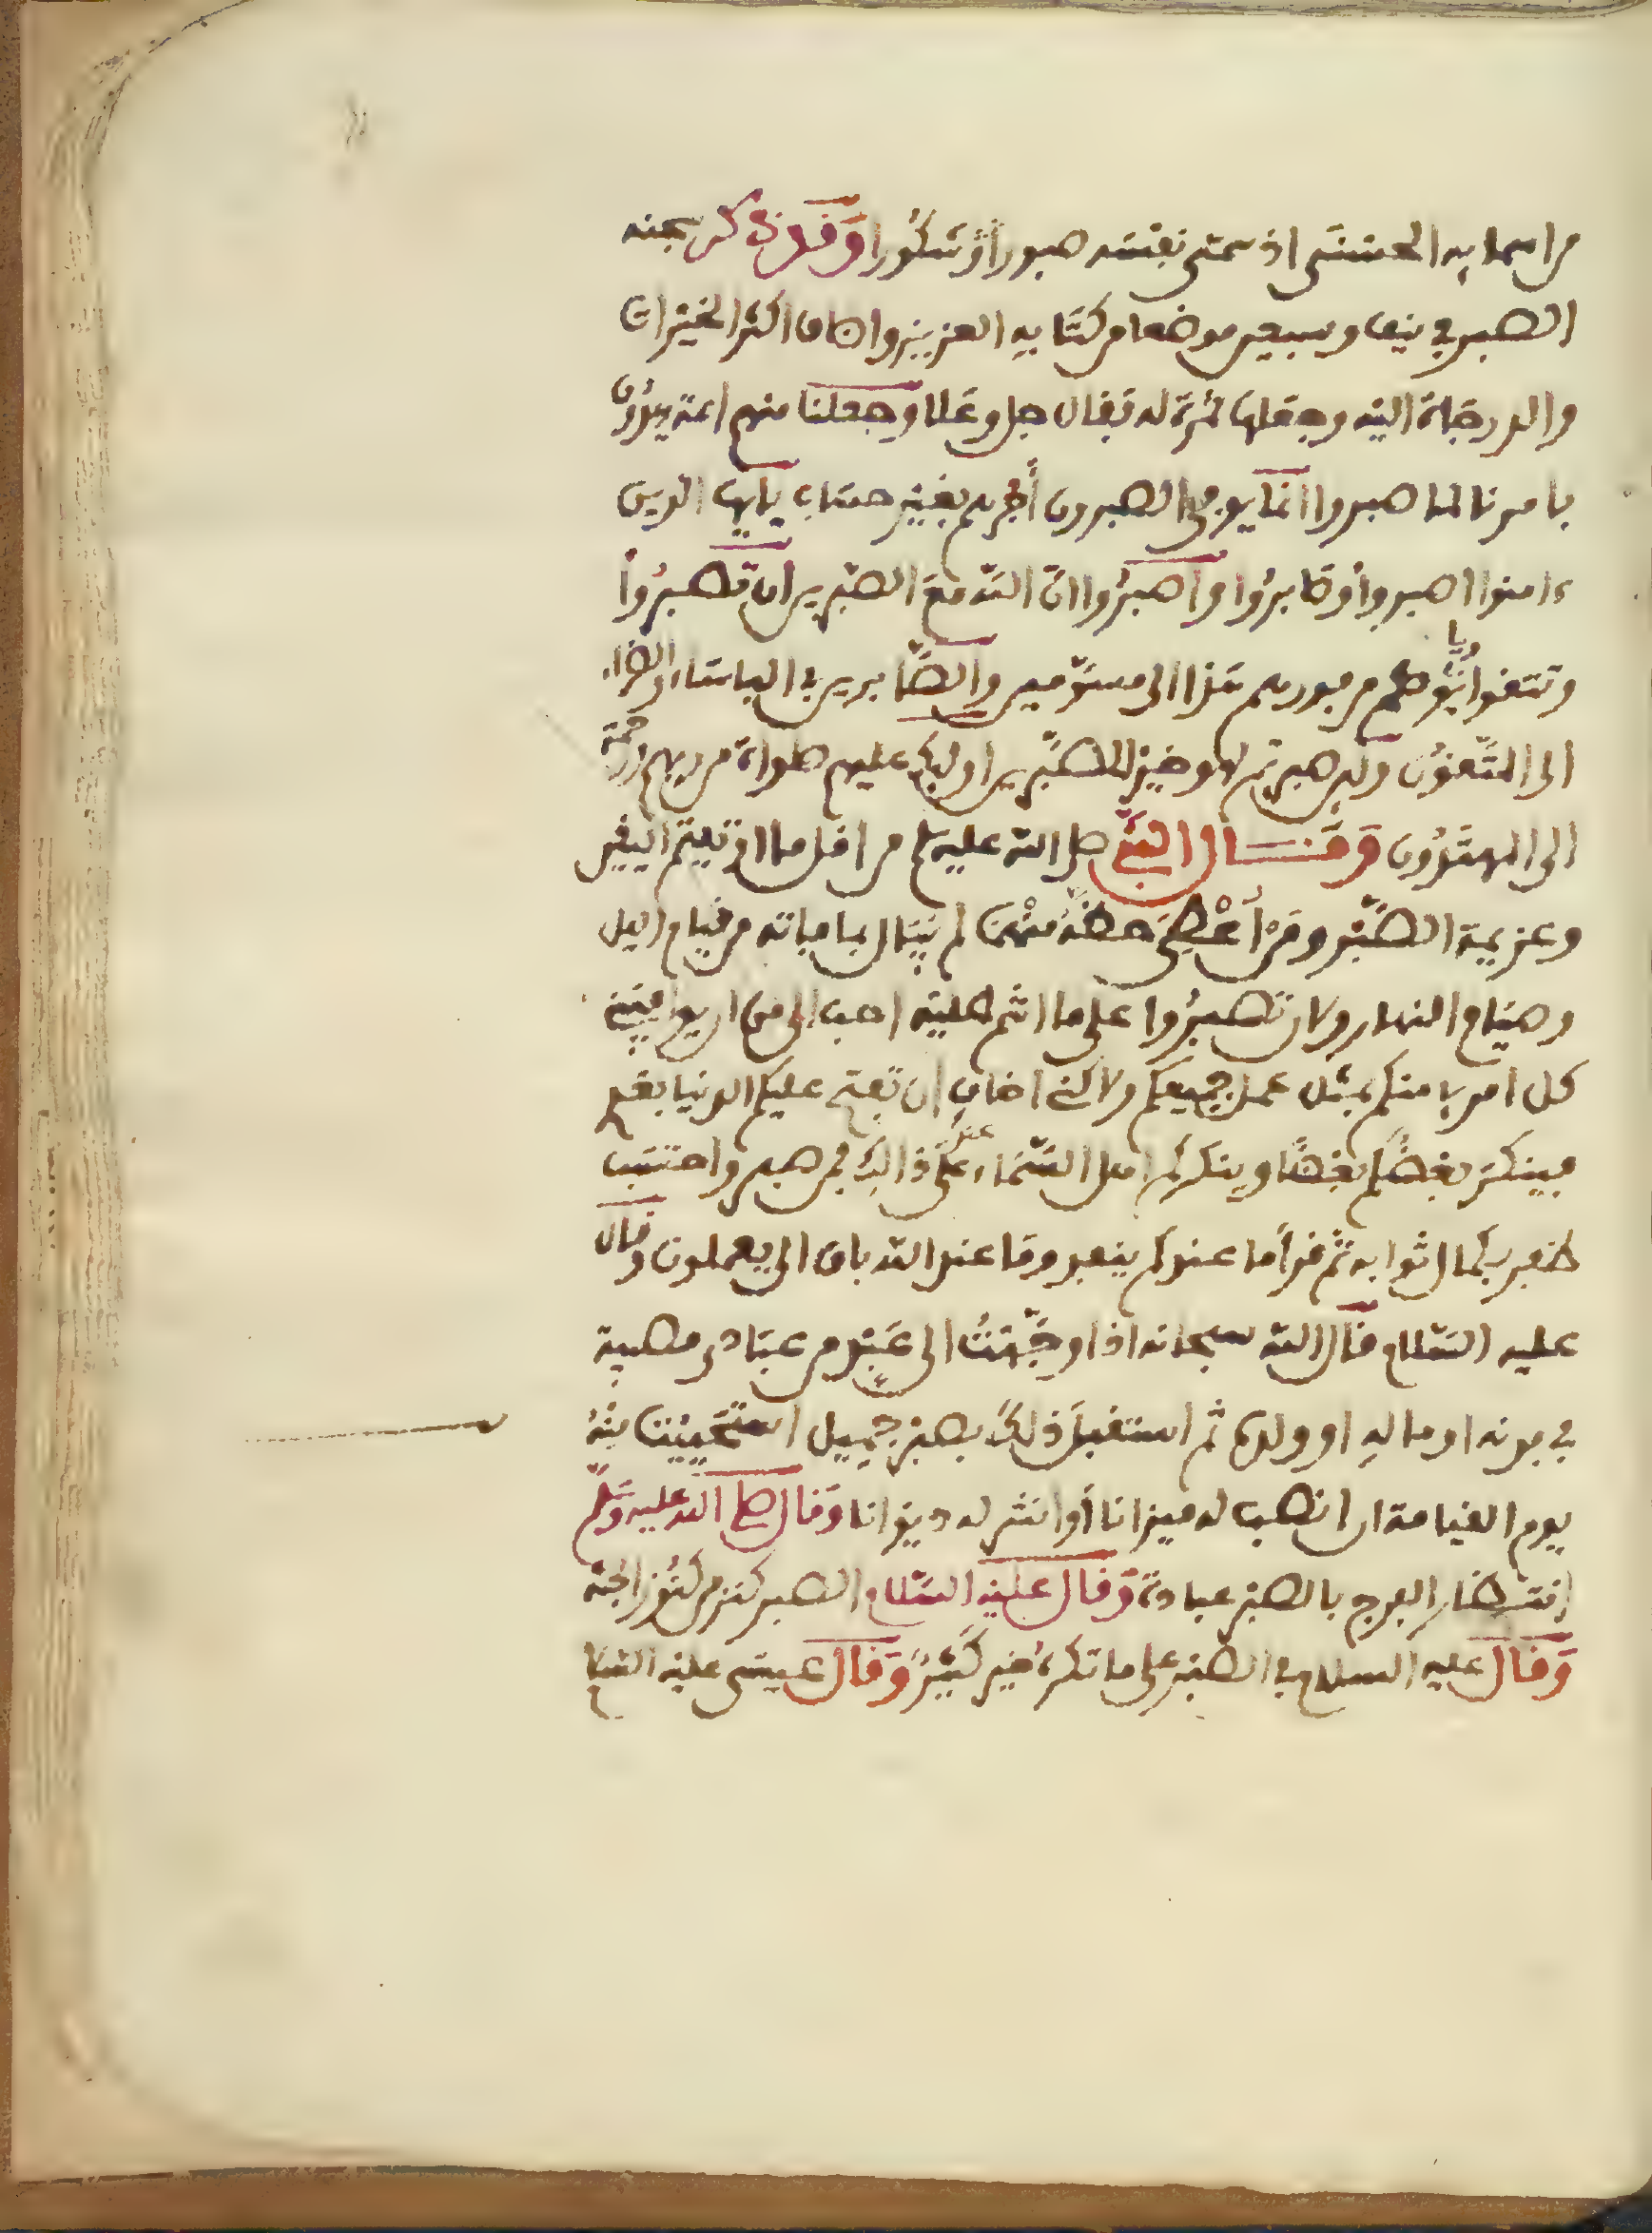 من اسمايه الحسنى اذ سمى نفسه صبورا وشكورا وقد ذكر سبحنه
الصبر في نيف وسبعين موضعا من كتابه العزيز واضاف اكثر الخيرات
والدرجاة اليه وجعلها ثمرة له فقال جل وعلا وجعلنا منهم ائمة يهدون
بامرنا لما صبروا انما يوفى الصبرون أجرهم بغير حساب يايها الذين
ءامنوا اصبروا وصابروا واصبروا ان الله مع الصبرين ان تصبروا
وتتقوا وياتوكم من فورهم هذا الى مسومين والصابرين في الباساء والضراء
الى المتقون ولين صبرتم لهو خير للصبرين اوليك عليهم صلواة من ربهم ورحمة
الى المهتدون وقال النبي صلى الله عليه وسلم من اقل ما اوتيتم اليقين
وعزيمة الصبر ومن أعطي حظه منهما لم يبال بما فاته من قيام اليل
وصيام النهار ولان تصبروا على ما انتم عليه احب الي من ان يوافيني
كل امرء منكم بمثل عمل جميعكم ولاكني اخاف ان تفتح عليكم الدنيا بعدي
فينكر بعضكم بعضا وينكركم اهل السماء عند ذالك فمن صبر واحتسب
ظفر بكمال ثوابه ثم قرأ ما عندكم ينفد وما عند الله باق الى يعملون وقال
عليه السلام قال الله سبحانه اذا وجهت الى عبد من عبادي مصيبة
في بدنه او ماله او ولده ثم استقبل ذلك بصبر جميل استحييت منه
يوم القيامة ان انصب له ميزانا أو انشر له ديوانا وقال صلى الله عليه وسلم
انتظار الفرج بالصبر عبادة وقال عليه السلام الصبر كنز من كنوز الجنة
وقال عليه السلام في الصبر على ما تكره خير كثير وقال عيسى عليه السلام